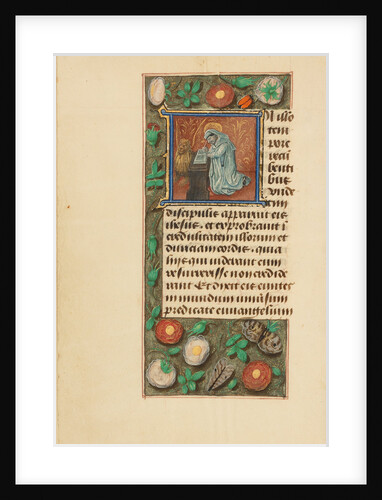 N illo
tem
pore
recū
benti
bus
unde
cim
discipulis apparuit eis
ihesus. et exprobravit i
credulitatem illorum et
duriciam cordis. quia
hiis qui viderant eum
resurrexisse non credide
rant Et dixit eis euntes
in mundum universum
predicate euvangelium